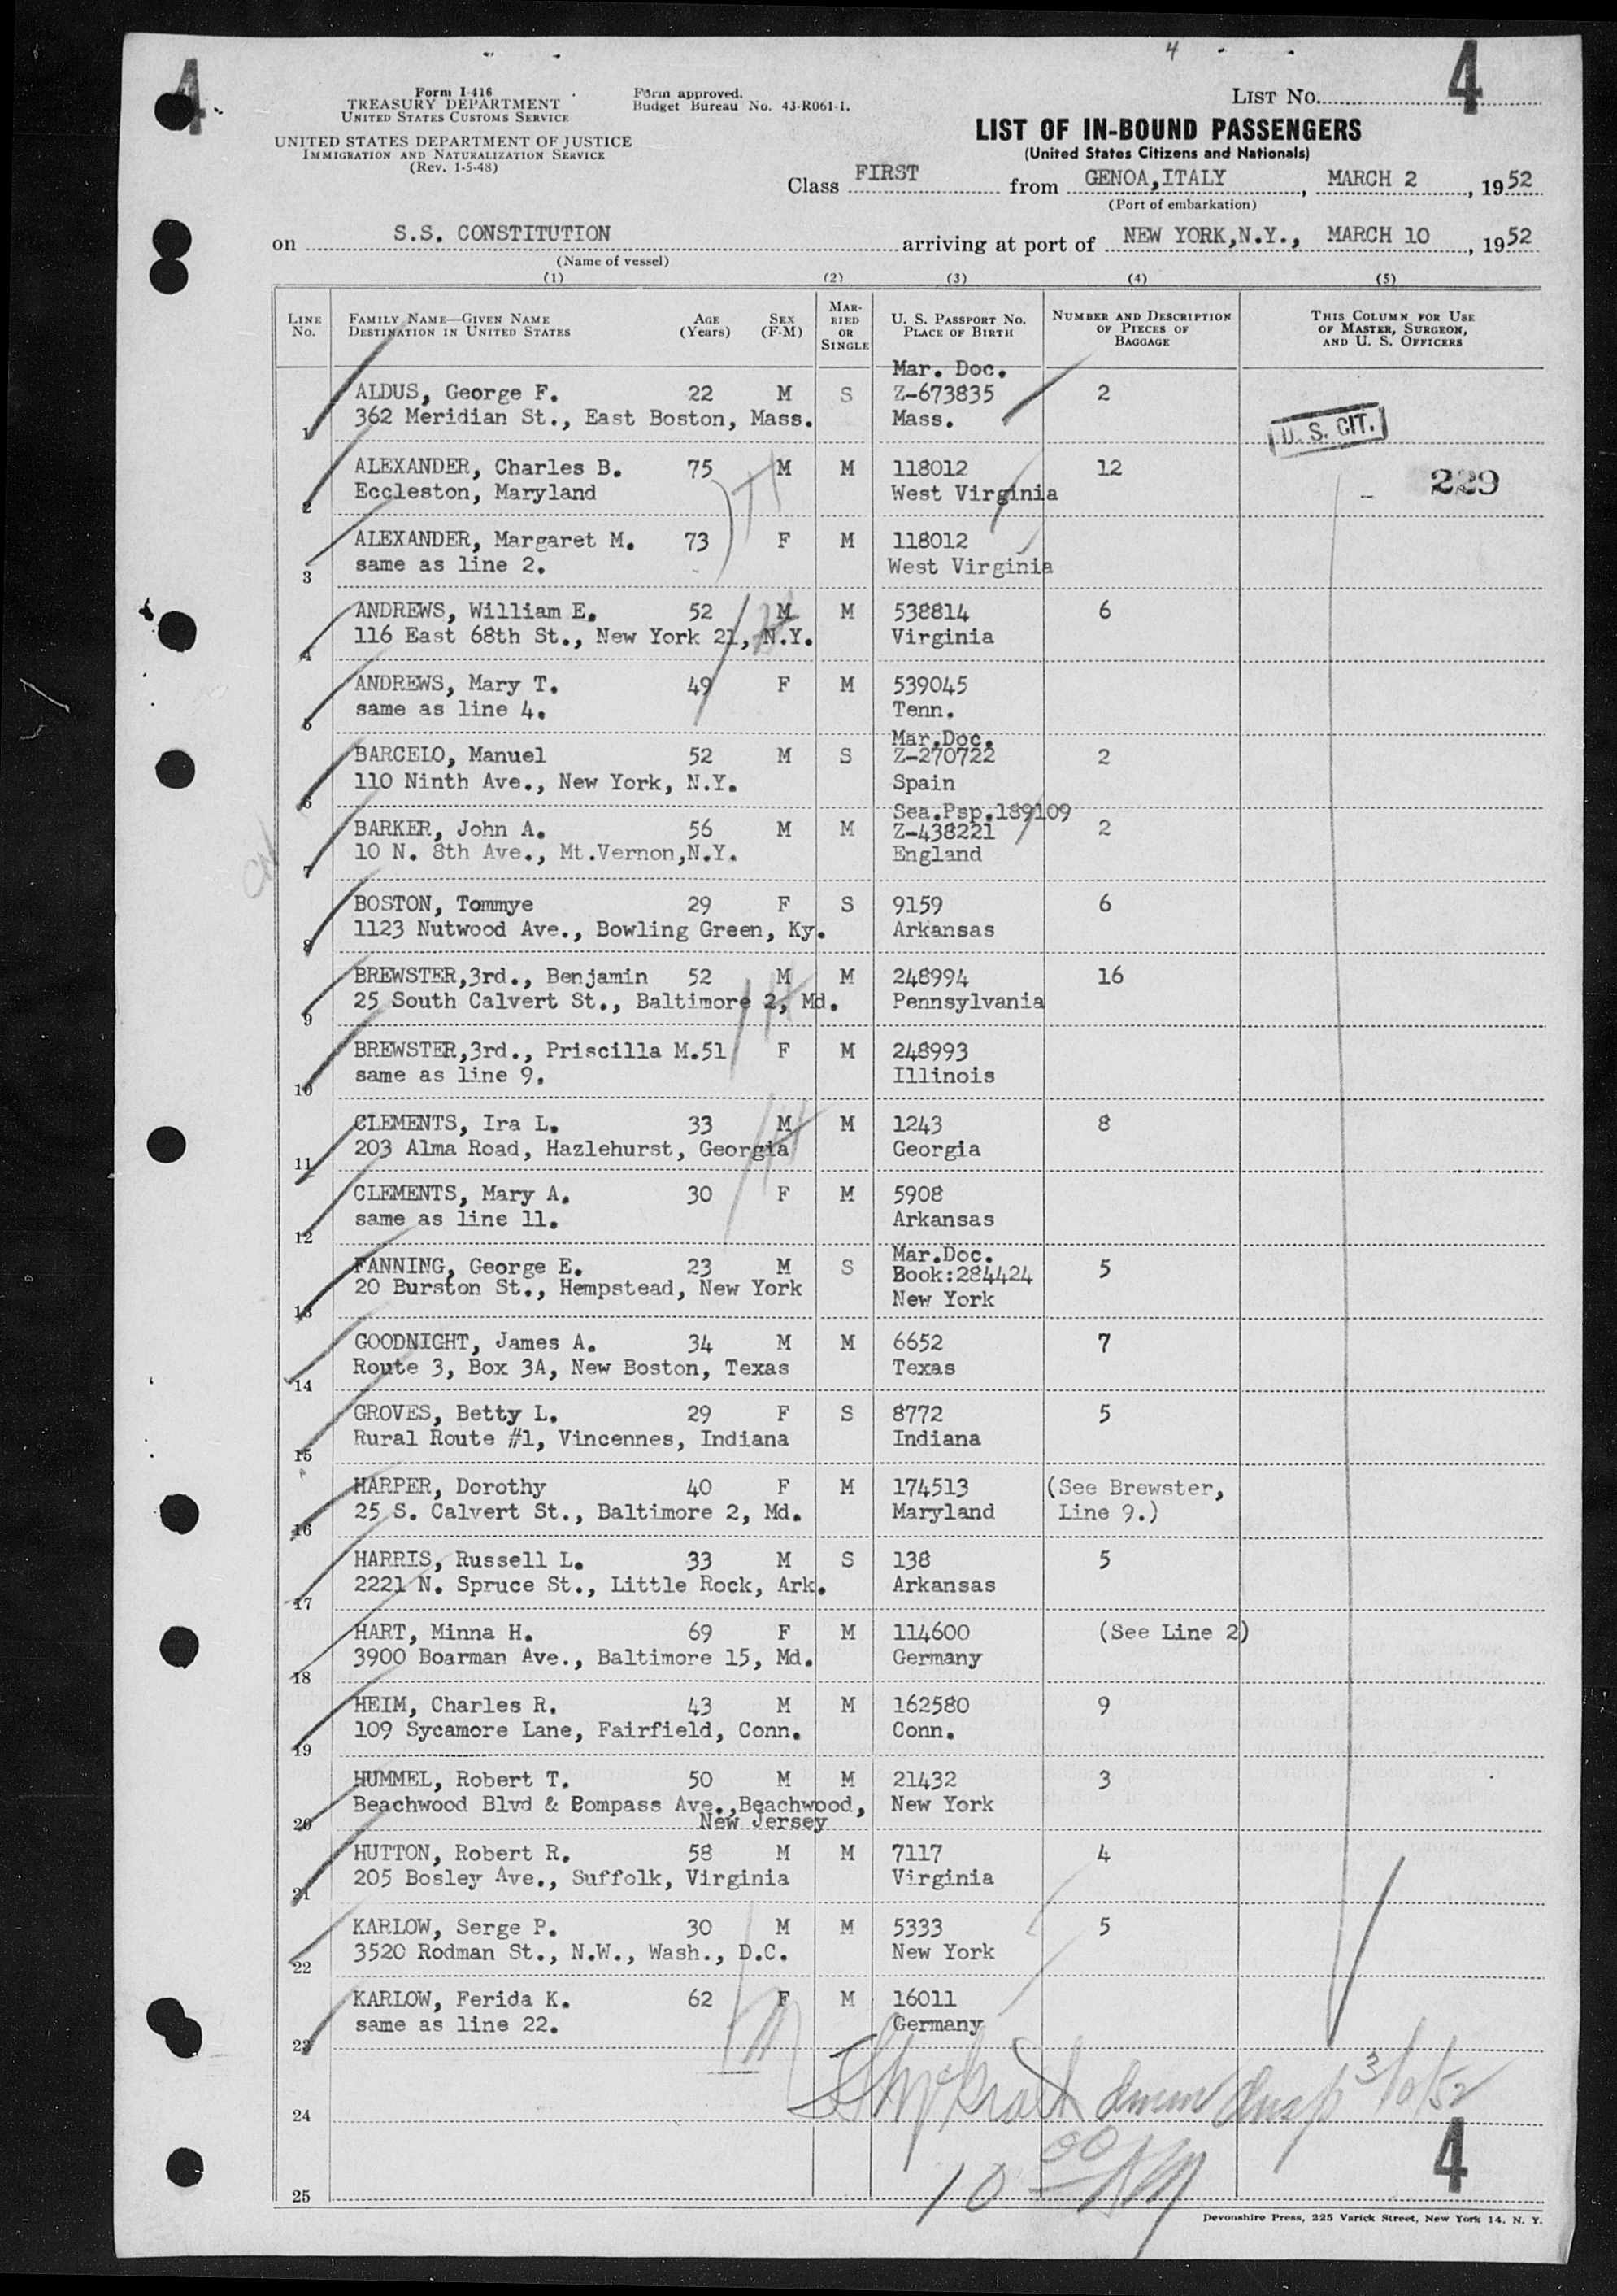 4
4
4
Form I-416
TREASURY DEPARTMENT
UNITED STATES CUSTOMS SERVICE
UNITED STATES DEPARTMENT OF JUSTICE
IMMIGRATION AND NATURALIZATION SERVICE
(Rev. 1-5-48)
Form approved.
Budget Bureau No. 43-R061-1.
LIST NO.
LIST OF IN-BOUND PASSENGERS
(United States Citizens and Nationals)
Class FIRST from GENOA,ITALY, MARCH 2, 1952
(Port of embarkation)
on S.S. CONSTITUTION arriving at port of NEW YORK,N.Y., MARCH 10, 1952
(Name of vessel)
(1) (2) (3) (4) (5)
LINE No. FAMILY NAME—GIVEN NAME DESTINATION IN UNITED STATES AGE (Years) SEX (F-M) MARRIED OR SINGLE U. S. PASSPORT NO. PLACE OF BIRTH NUMBER AND DESCRIPTION OF PIECES OF BAGGAGE THIS COLUMN FOR USE OF MASTER, SURGEON, AND U. S. OFFICERS
Mar. Doc.
ALDUS, George F. 22 M S Z-673835 2
1 362 Meridian St., East Boston, Mass. Mass.
U. S. CIT.
ALEXANDER, Charles B. 75 M M 118012 12
229
2 Eccleston, Maryland West Virginia
ALEXANDER, Margaret M. 73 F M 118012
3 same as line 2. West Virginia
ANDREWS, William E. 52 M M 538814 6
4 116 East 68th St., New York 21, N.Y. Virginia
ANDREWS, Mary T. 49 F M 539045
5 same as line 4. Tenn.
Mar.Doc.
BARCELO, Manuel 52 M S Z-270722 2
6 110 Ninth Ave., New York, N.Y. Spain
Sea.Psp.189109
BARKER, John A. 56 M M Z-438221 2
7 10 N. 8th Ave., Mt.Vernon,N.Y. England
BOSTON, Tommye 29 F S 9159 6
8 1123 Nutwood Ave., Bowling Green, Ky. Arkansas
BREWSTER,3rd., Benjamin 52 M M 248994 16
9 25 South Calvert St., Baltimore 2, Md. Pennsylvania
BREWSTER,3rd., Priscilla M.51 F M 248993
10 same as line 9. Illinois
CLEMENTS, Ira L. 33 M M 1243 8
11 203 Alma Road, Hazlehurst, Georgia Georgia
CLEMENTS, Mary A. 30 F M 5908
12 same as line 11. Arkansas
Mar.Doc.
FANNING, George E. 23 M S Book:284424 5
13 20 Burston St., Hempstead, New York New York
GOODNIGHT, James A. 34 M M 6652 7
14 Route 3, Box 3A, New Boston, Texas Texas
GROVES, Betty L. 29 F S 8772 5
15 Rural Route #1, Vincennes, Indiana Indiana
HARPER, Dorothy 40 F M 174513 (See Brewster,
16 25 S. Calvert St., Baltimore 2, Md. Maryland Line 9.)
HARRIS, Russell L. 33 M S 138 5
17 2221 N. Spruce St., Little Rock, Ark. Arkansas
HART, Minna H. 69 F M 114600 (See Line 2)
18 3900 Boarman Ave., Baltimore 15, Md. Germany
HEIM, Charles R. 43 M M 162580 9
19 109 Sycamore Lane, Fairfield, Conn. Conn.
HUMMEL, Robert T. 50 M M 21432 3
20 Beachwood Blvd & Compass Ave.,Beachwood, New York
New Jersey
HUTTON, Robert R. 58 M M 7117 4
21 205 Bosley Ave., Suffolk, Virginia Virginia
KARLOW, Serge P. 30 M M 5333 5
22 3520 Rodman St., N.W., Wash., D.C. New York
KARLOW, Ferida K. 62 F M 16011
23 same as line 22. Germany
3/10/52
24
10 00 AM
4
25
Devonshire Press, 225 Varick Street, New York 14, N. Y.